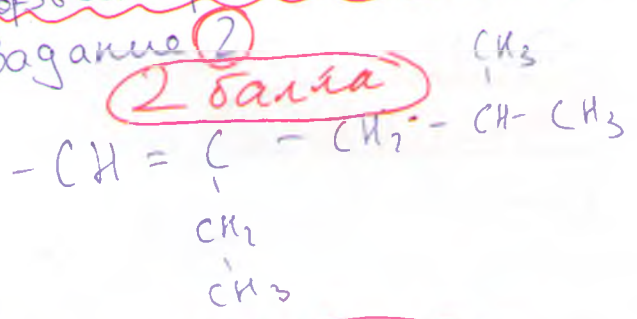 Задание 2
2 балла
CH3
- CH = C - CH2 - CH - CH3
CH2
CH3